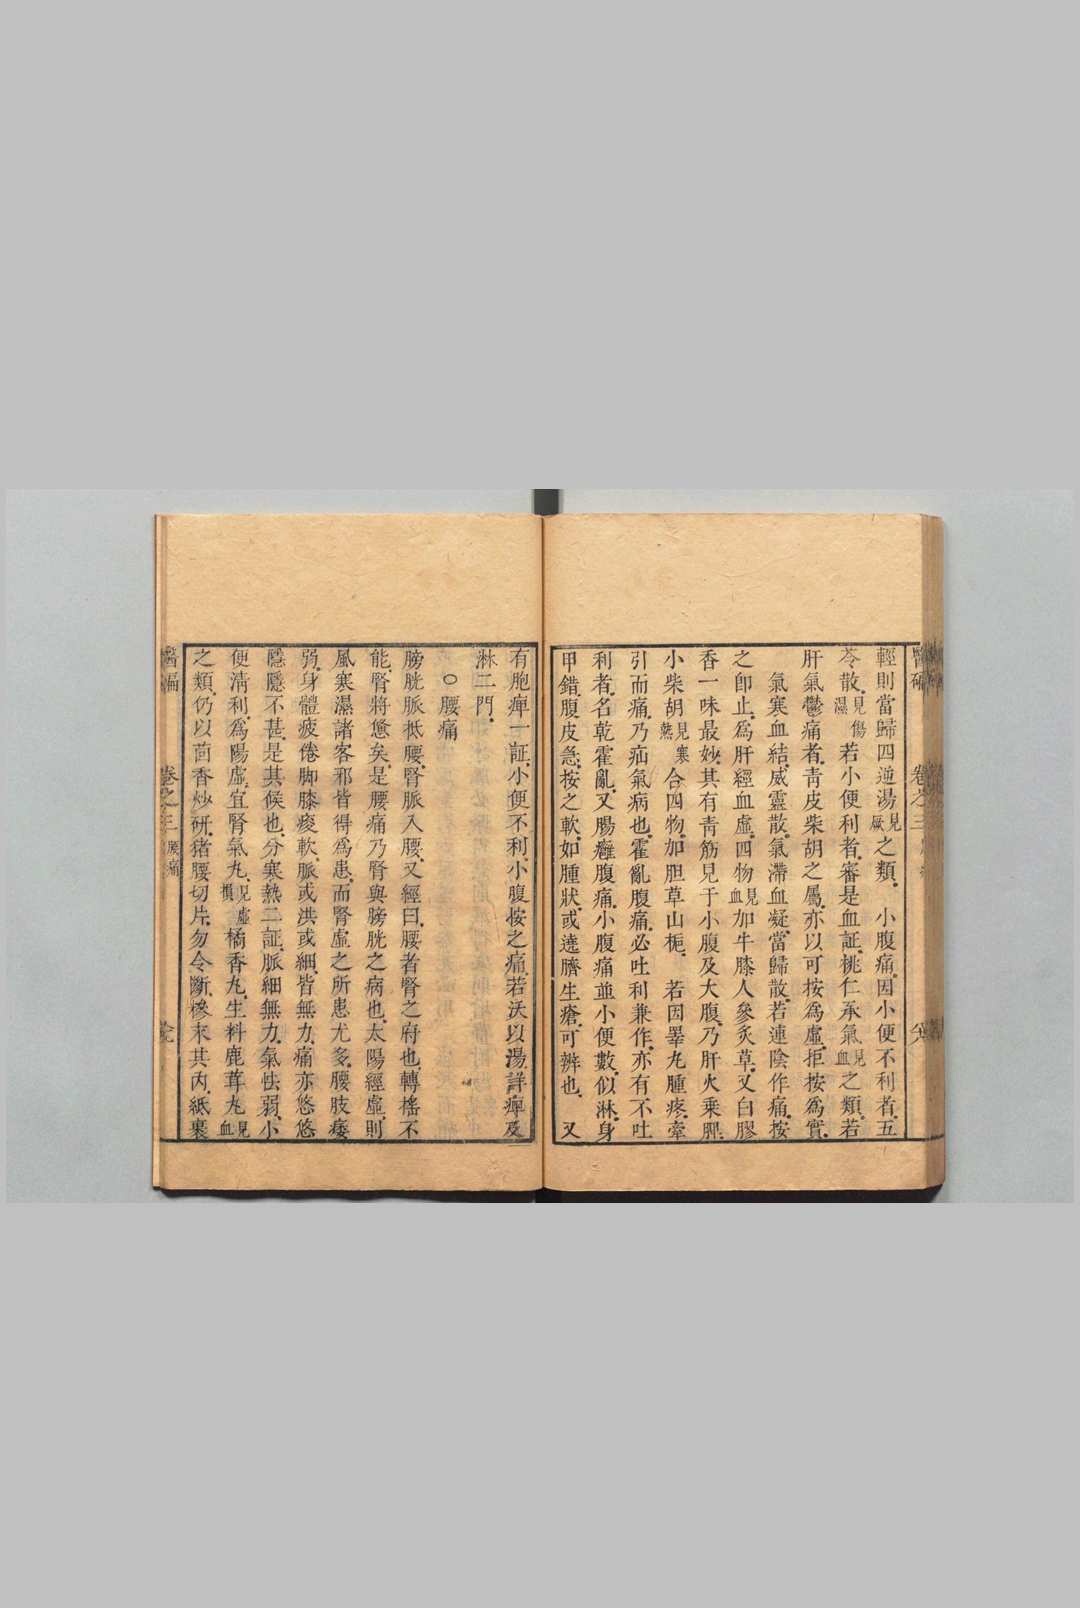 輕則當歸四逆湯見厥之類。　小腹痛因小便不利者五
苓散見傷濕若小便利者審是血証桃仁承氣見血之類若
肝氣鬱痛者青皮柴胡之屬亦以可按爲虛拒按爲實
氣寒血結威靈散氣滯血凝當歸散若連陰作痛按
之卽止爲肝經血虛四物見血加牛膝人參炙草又白膠
香一味最妙其有青筋見于小腹及大腹乃肝火乘脾
小柴胡見寒熱合四物加胆草山梔　若因睪丸腫疼牽
引而痛乃疝氣病也霍亂腹痛必吐利兼作亦有不吐
利者名乾霍亂又腸癰腹痛小腹痛並小便數似淋身
甲錯腹皮急按之軟如腫狀或遶臍生瘡可辨也　又
有胞痺一証小便不利小腹按之痛若沃以湯詳痺及
淋二門。
○腰痛
膀胱脈抵腰腎脈入腰又經曰腰者腎之府也轉搖不
能腎將憊矣是腰痛乃腎與膀胱之病也太陽經虛則
風寒濕諸客邪皆得爲患而腎虛之所患尤多腰肢痿
弱身體疲倦脚膝痠軟脈或洪或細皆無力痛亦悠悠
隱隱不甚是其候也分寒熱二証脈細無力氣怯弱小
便清利爲陽虛宜腎氣丸見虛損橘香丸生料鹿茸丸見血
之類仍以茴香炒研猪腰切片勿令斷摻末其內紙裹
醫碥　卷之三　腰痛